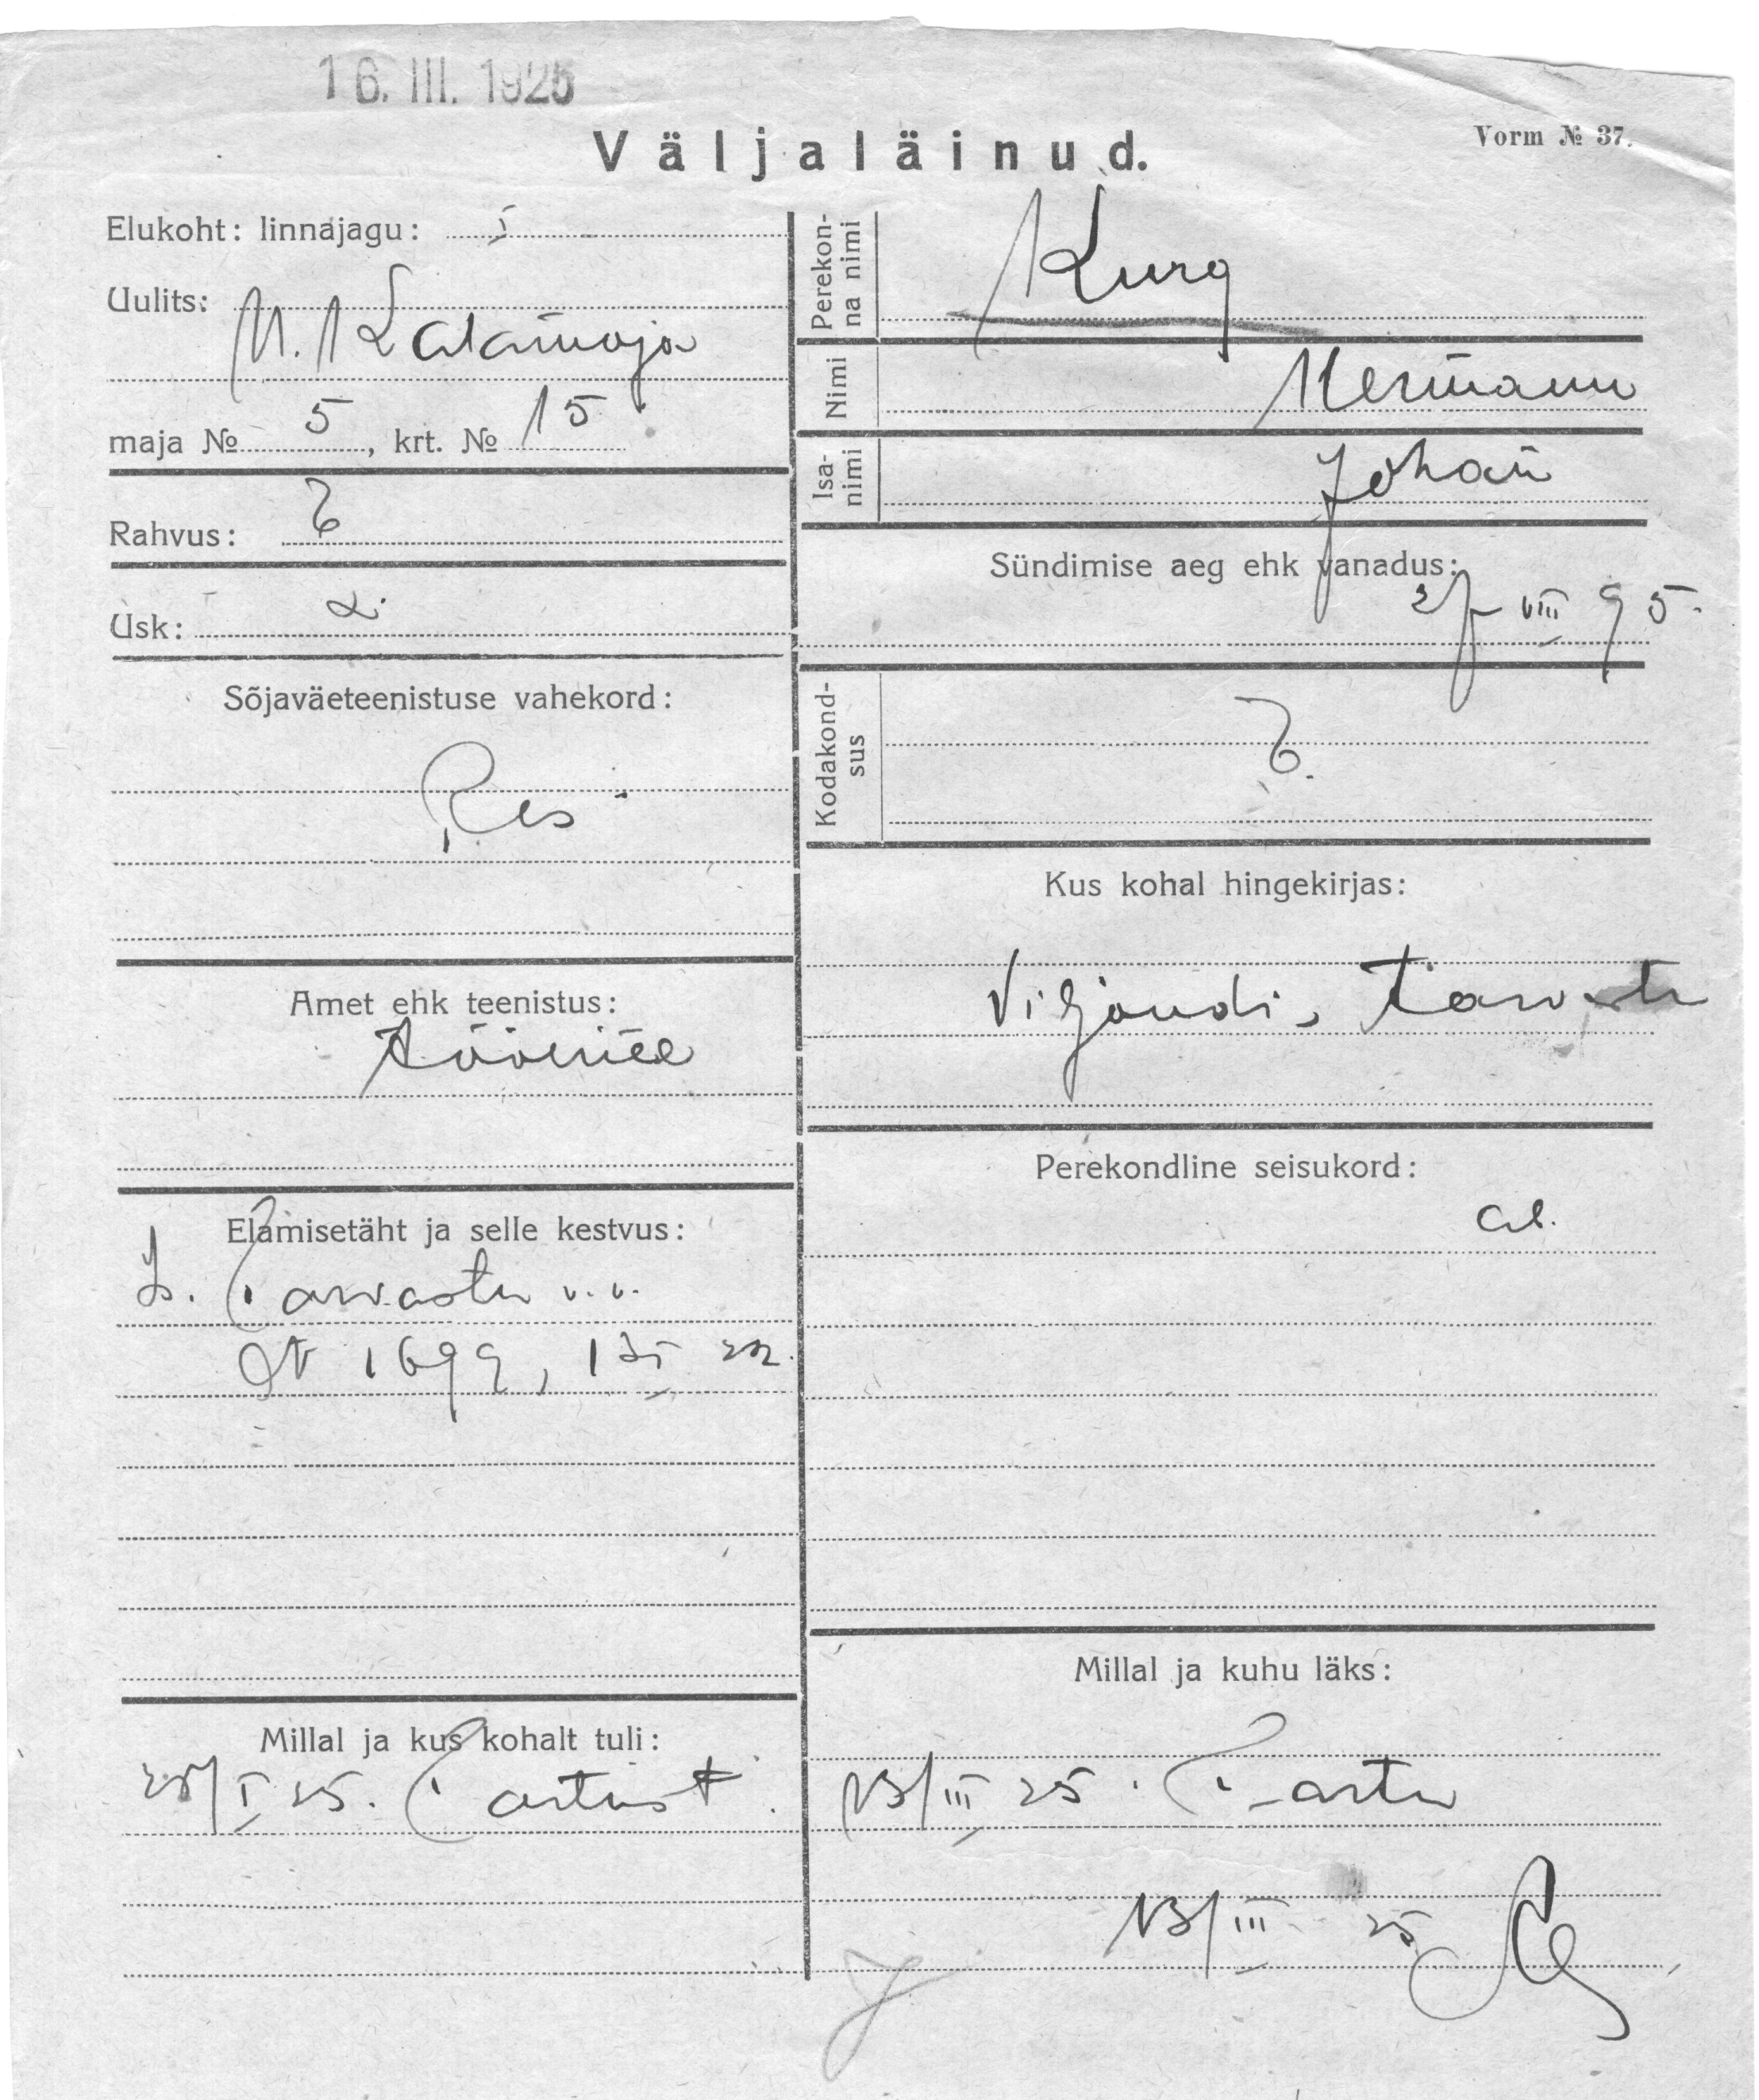 16. III. 1925
Väljaläinud.
Vorm № 37.
Elukoht: linnajagu: I
Uulits:
U. Kalamaja
maja № 5, krt. № 15
Rahvus: E
Usk: L.
Sõjaväeteenistuse vahekord:
Res.
Amet ehk teenistus:
töömees
Elamisetäht ja selle kestvus:
I. Tarvastu v. v.
№ 1699, 22.
Millal ja kus kohalt tuli:
25/I 25. Tartust.
Perekon-
na nimi
Kurg
Nimi
Hermann
Isa-
nimi
Johan
Sündimise aeg ehk vanadus:
VIII 95.
Kodakond-
sus
E.
Kus kohal hingekirjas:
Viljandi, Tarvastu
Perekondline seisukord:
ab.
Millal ja kuhu läks:
13/III 25. Tartu
13/III 25